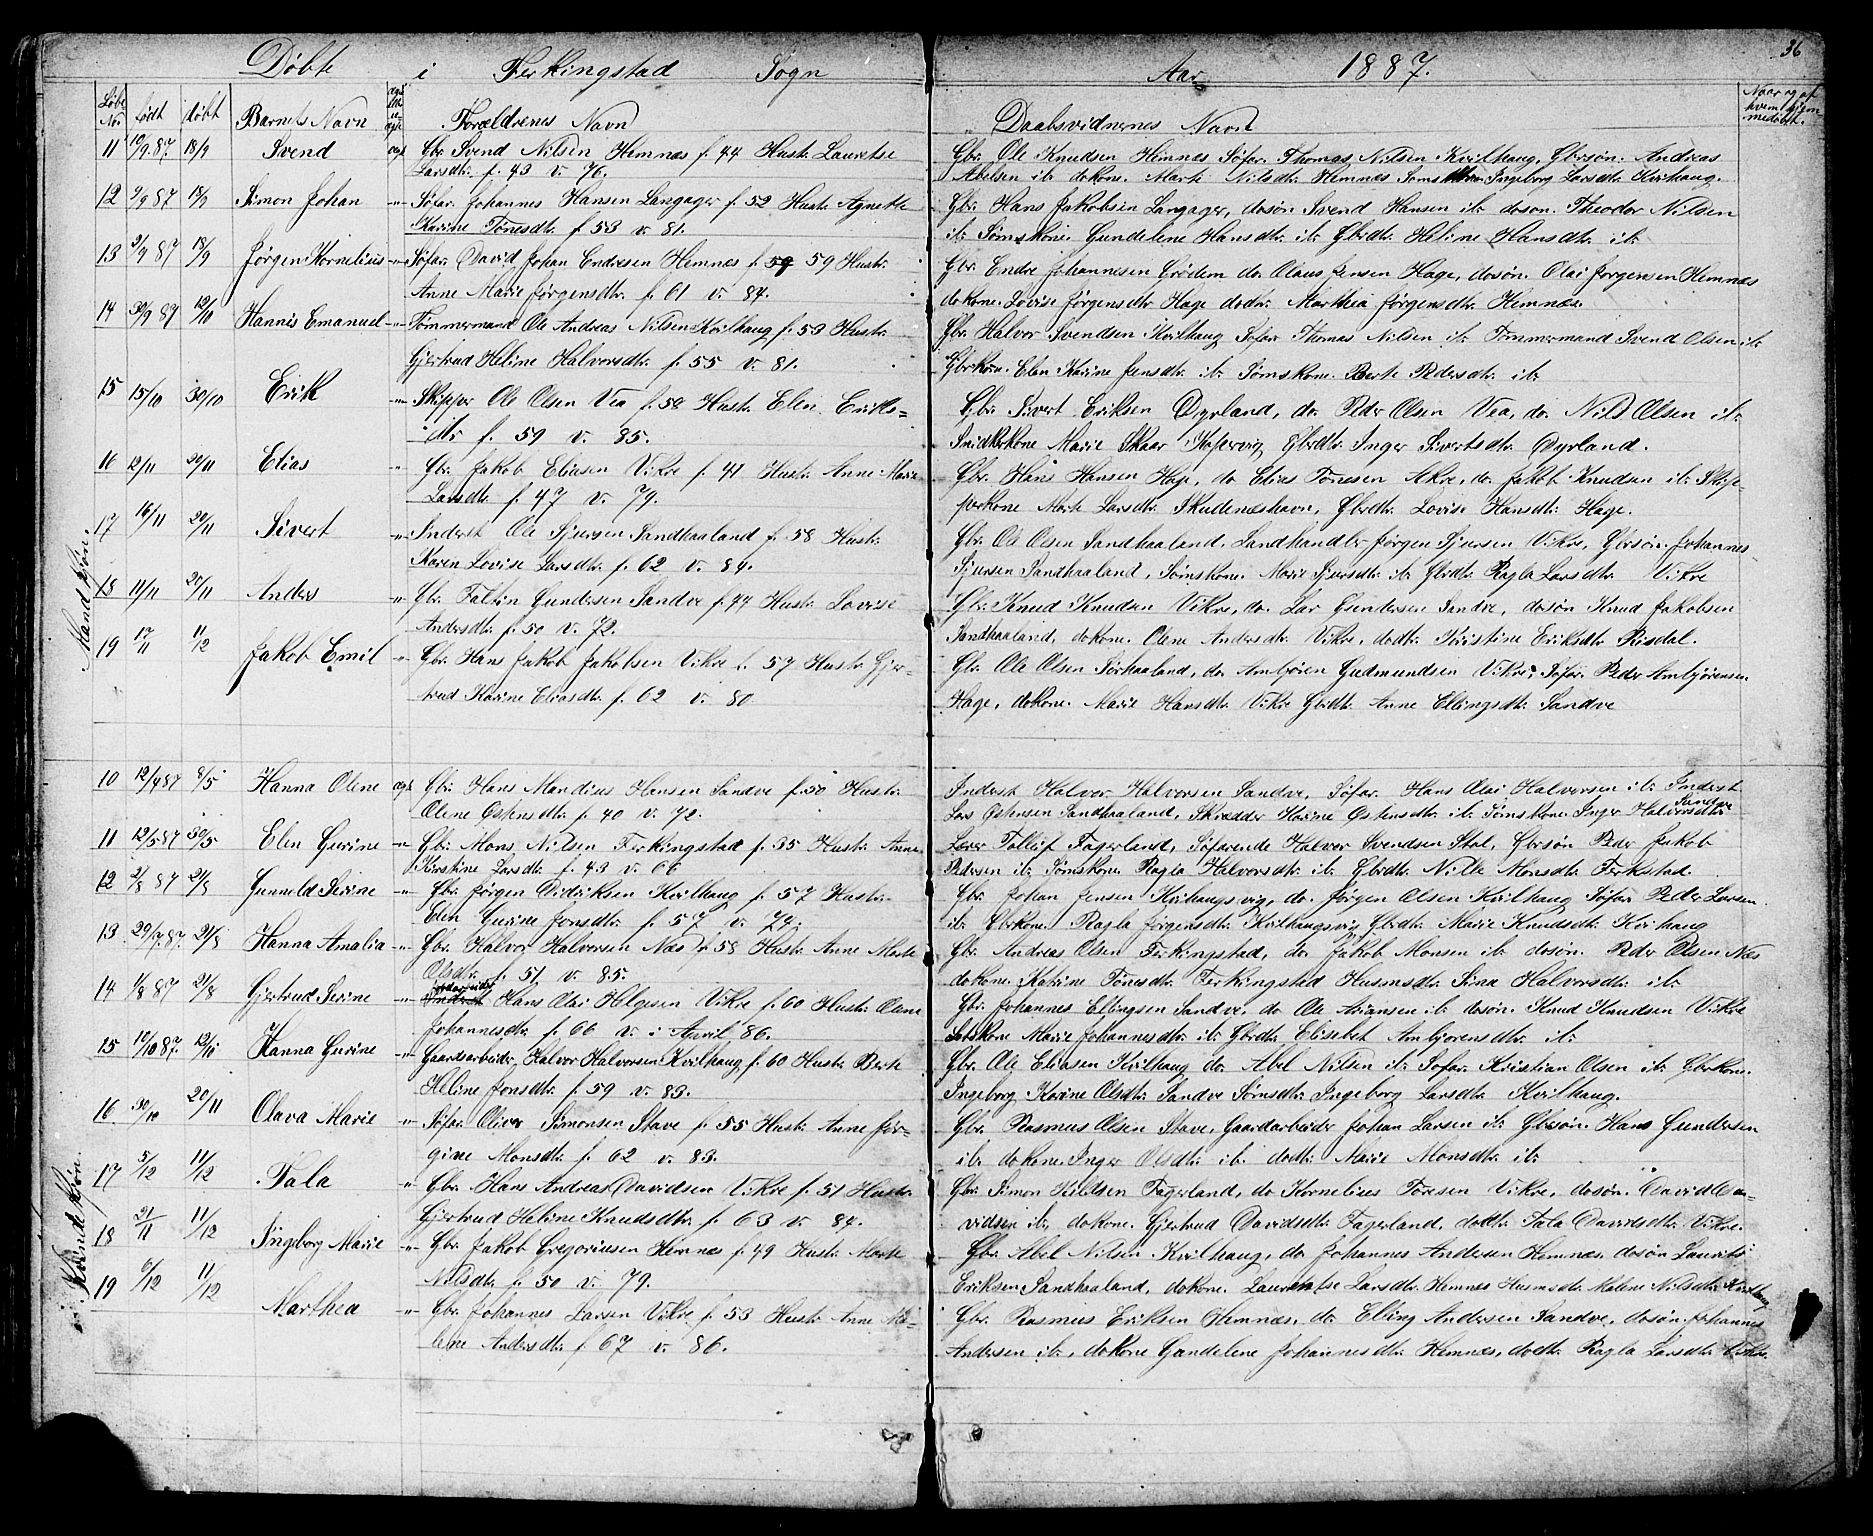 Døbte i Ferkingstad Sogn
Aar 1887.
36
Løbe No
født
døbt
Barnets Navn
Forældrenes Navn
Daabsvidnernes Navn
Naar og af hvem hjemmedøbt.
Mandkjøn.
11 10/9 87 18/9 Svend Gbr. Svend Nilsen Hemnæs f. 44 Hustr. Lauretse
Larsdtr. f. 43 v. 76.
Gbr. Ole Knudsen Hemnes Søfar. Thomas Nilsen Kvilhaug, Gbrsøn. Andreas
Abelsen ib. dokone. Marte Nilsdtr. Hemnæs Ingeborg Larsdtr. Kvilhaug.
12 9/9 87 18/9 Simon Johan " Søfar. Johannes Hansen Langager f. 52 Hustr. Agnethe
Karine Tønesdtr. f. 53 v. 81.
Gbr. Hans Jakobsen Langager, dosøn Svend Hansen ib. dosøn. Theodor Nilsen
ib. Sømskone. Gundeline Hansdtr. ib. Gbrdtr. Heline Hansdtr. ib.
13 2/9 87 18/9 Jørgen Kornelius " Søfar. David Johan Endresen Hemnæs f. 59 Hustr.
Anne Marie Jørgensdtr. f. 61 v. 84.
Gbr. Endre Johannesen Grødem do. Olaus Jensen Hage, dosøn. Olai Jørgensen Hemnæs
dokone. Lovise Jørgensdtr. Hage dodtr. Marthea Jørgensdtr. Hemnæs.
14 30/9 87 12/10 Hannes Emanuel " Tømmermand Ole Andreas Nilsen Kvilhaug f. 53 Hustr.
Gjertrud Heline Halvorsdtr. f. 55 v. 81.
Gbr. Halvor Svendsen Kvilhaug Søfar. Thomas Nilsen ib. Tømmermand Svend Olsen ib.
Gbrkone. Elen Karine Jensdtr. ib. Sømskone. Berte Pedersdtr. ib.
15 15/10 30/10 Erik " Skipper Ole Olsen Vea f. 58 Hustr. Elen Eriks=
dtr. f. 59 v. 85.
Gbr. Sivert Eriksen Dyrland, do. Peder Olsen Vea, do. Nils Olsen ib.
Snidkerkone Marie Skaar Kopervig Gbrdtr. Inger Sivertsdtr. Dyrland.
16 12/11 20/11 Elias " Gbr. Jakob Eliasen Vikre f. 41 Hustr. Anne Marie
Larsdtr. f. 47 v. 79.
Gbr. Hans Hansen Hage, do Elias Tønesen Akre, do. Jakob Knudsen ib. Skip-
perkone Marte Larsdtr. Skudenæshavn, Gbrdtr. Lovise Hansdtr. Hage.
17 16/11 20/11 Sivert " Inderst Ole Sjursen Sandhaaland f. 58 Hustr.
Karen Lovise Larsdtr. f. 62 v. 84.
Gbr. Ole Olsen Sandhaaland, Landhandler Jørgen Sjursen Vikre, Gbrsøn. Johannes
Sjursen Sandhaaland, Sømskone. Marie Sjursdtr. ib. Gbrdtr. Ragla Larsdtr. Vikre
18 11/11 27/11 Anders " Gbr. Faltin Gundersen Sandve f. 44 Hustr. Lovise
Andersdtr. f. 50 v. 72.
Gbr. Knud Knudsen Vikre, do. Lar Gundersen Sandve, dosøn Knud Jakobsen
Sandhaaland, dokone. Olene Andersdtr. Vikre, dodtr. Kristine Eriksdtr. Risdal.
19 17/11 11/12 Jakob Emil " Gbr. Hans Jakob Jakobsen Vikre f. 57 Hustr. Gjer-
trud Karine Eliasdtr. f. 62 v. 80
Gbr. Ole Olsen Sørhaaland, do. Ambjøren Gudmundsen Vikre, Søfar. Peder Ambjørensen
Hage, dokone. Marie Hansdtr. Vikre Gbrdtr. Anne Ellingsdtr. Sandve
Kvindekjøn.
10 12/4 87 8/5 Hanna Olene Gbr. Hans Mandius Hansen Sandve f. 50 Hustr.
Olene Ostensdtr. f. 40 v. 72.
Inderst Halvor Halvorsen Sandve, Søfar. Hans Olai Halvorsen ib. Inderst
Lars Ostensen Sandhaaland, Skrædder Karine Ostensdtr. ib. Sømskone Inger Halvorsdtr. Sandve
11 12/5 87 30/5 Elen Gurine " Gbr. Mons Nilsen Ferkingstad f. 35 Hustr. Anne
Kirstine Larsdtr. f. 43 v. 66
Lærer Tollef Fagerland, Søfarende Halvor Svendsen Stol, Gbrsøn Peder Jakob
Pedersen ib. Sømskone. Ragla Halvorsdtr. ib. Gbrdtr. Nille Monsdtr. Ferkstad.
12 2/8 87 21/8 Gunneld Serine " Gbr. Jørgen Didriksen Kvilhaug f. 57 Hustr.
Elen Gurine Jonsdtr. f. 57 v. 74.
Gbr. Johan Jensen Kvilhaugsvig, do. Jørgen Olsen Kvilhaug Søfar. Peder Larsen
ib. Gbrkone. Ragla Jørgensdtr. Kvilhaugsvig Gbrdtr. Marie Knudsdtr. Kvilhaug
13 29/7 87. 21/8 Hanna Amalia " Gbr. Halvor Halvorsen Næs f. 58 Hustr. Anne Marte
Olsdtr. f. 51 v. 85.
Gbr. Andreas Olsen Ferkingstad, do Jakob Monsen ib. dosøn. Peder Olsen Næs
dokone. Katrine Tønesdtr. Ferkingstad Husmsdtr. Sina Halvorsdtr. ib.
14 1/8 87 21/8 Gjertrud Serine " Hans Olai Helgesen Vikre f. 60 Hustr. Olene
Johannesdtr. f. 66 v. i April 86.
Gbr. Johannes Ellingsen Sandve, do Ole Ariansen ib. dosøn. Knud Knudsen Vikre
Marie Johannesdtr. ib. Gbrdtr. Elisebet Ambjørensdtr. ib.
15 10/10 87. 12/11 Hanna Gurine " Gaardarbeider Halvor Halvorsen Kvilhaug f. 60 Hustr. Berte
Heline Jonsdtr. f. 59 v. 83.
Gbr. Ole Eliasen Kvilhaug do. Abel Nilsen ib. Søfar. Kristian Olsen ib. Gbrkone.
Ingeborg Karine Olsdtr. Sandve Sømsdtr. Ingeborg Larsdtr. Kvilhaug.
16 30/10 20/11 Olava Marie " Søfar. Oliver Simonsen Stave f. 55 Hustr. Anne Jør-
gine Monsdtr. f. 62 v. 83.
Gbr. Rasmus Olsen Stave, Gaardarbeider Johan Larsen ib. Gbrsøn. Hans Gundersen
ib. dokone. Inger Olsdtr. ib. dodtr. Marie Monsdtr. ib.
17 5/12 11/12 Tala " Gbr. Hans Andreas Davidsen Vikre f. 51 Hustr.
Gjertrud Heline Knudsdtr. f. 63 v. 84.
Gbr. Simon Fagerland, do Kornelius Toresen Vikre, dosøn. David Da-
vidsen ib. dokone. Gjertrud Davidsdtr. Fagerland, dodtr. Tala Davidsdtr. Vikre.
18 21/11 11/12 Ingeborg Marie " Gbr. Jakob Gregoriusen Hemnæs f. 49 Hustr. Marte
Nilsdtr. f. 50 v. 79.
Gbr. Abel Nilsen Kvilhaug, do Johannes Andersen Hemnæs, dosøn Laurits
Eriksen Sandhaaland, dokone. Laurentse Larsdtr. Hemnes Husmsdtr. Malene Nilsdtr. Kvilhaug
19 6/12 11/12 Marthea " Gbr. Johannes Larsen Vikre f. 53 Hustr. Anne Ma-
lene Andersdtr. f. 67 v. 86.
Gbr. Rasmus Eriksen Hemnæs, do Elling Andersen Sandve, dosøn. Johannes
Andersen ib., dokone Gundelene Johannesdtr. Hemnæs, dodtr. Ragla Larsdtr. Vikre.